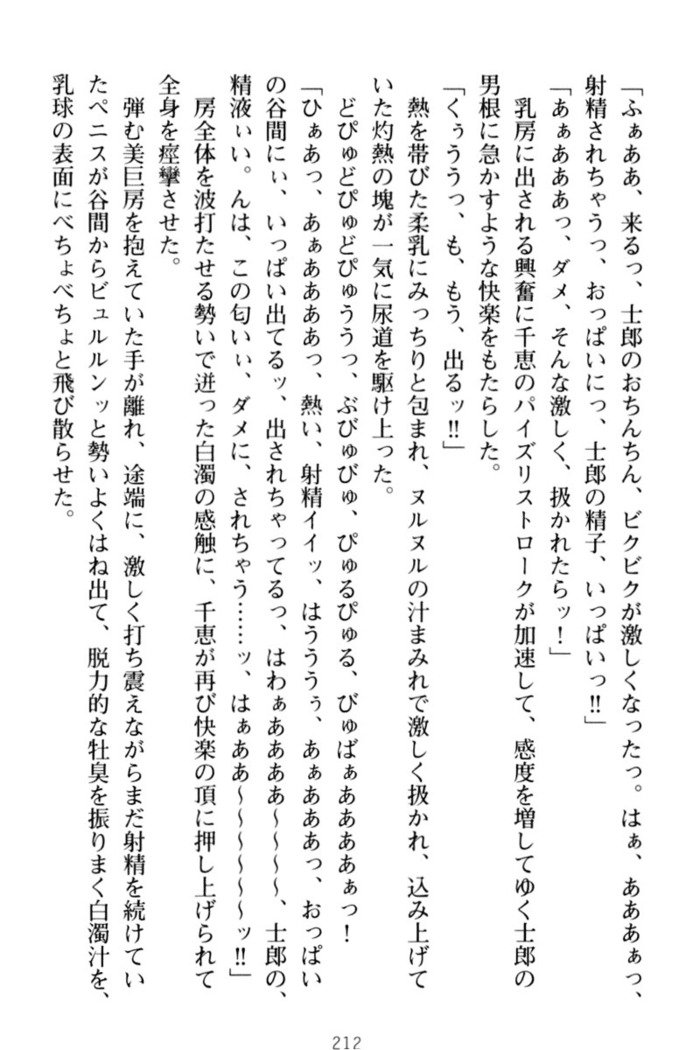 「ふぁああ、来るっ、士郎のおちんちん、ビクビクが激しくなったっ。はぁ、あああぁっ、
射精されちゃうっ、おっぱいにっ、士郎の精子、いっぱいっ‼」
「あぁあああっ、ダメ、そんな激しく、扱かれたらッ！」
乳房に出される興奮に千恵のパイズリストロークが加速して、感度を増してゆく士郎の
男根に急かすような快楽をもたらした。
「くぅううっ、も、もう、出るッ‼」
熱を帯びた柔乳にみっちりと包まれ、ヌルヌルの汁まみれで激しく扱かれ、込み上げて
いた灼熱の塊が一気に尿道を駆け上った。
どぴゅどぴゅどぴゅううっ、ぶびゅびゅ、ぴゅるぴゅる、びゅばぁああああぁっ！
「ひぁあっ、あぁああああっ、熱い、射精イイッ、はうううぅ、あぁあああっ、おっぱい
の谷間にぃ、いっぱい出てるッ、出されちゃってるっ、はわぁあああああ～～～～、士郎の、
精液ぃい。んは、この匂いぃ、ダメに、されちゃう……ッ、はぁああ～～～～～～ッ‼」
房全体を波打たせる勢いで迸った白濁の感触に、千恵が再び快楽の頂に押し上げられて
全身を痙攣させた。
弾む美巨房を抱えていた手が離れ、途端に、激しく打ち震えながらまだ射精を続けてい
たペニスが谷間からビュルルンッと勢いよくはね出て、脱力的な牡臭を振りまく白濁汁を、
乳球の表面にべちょべちょと飛び散らせた。
212